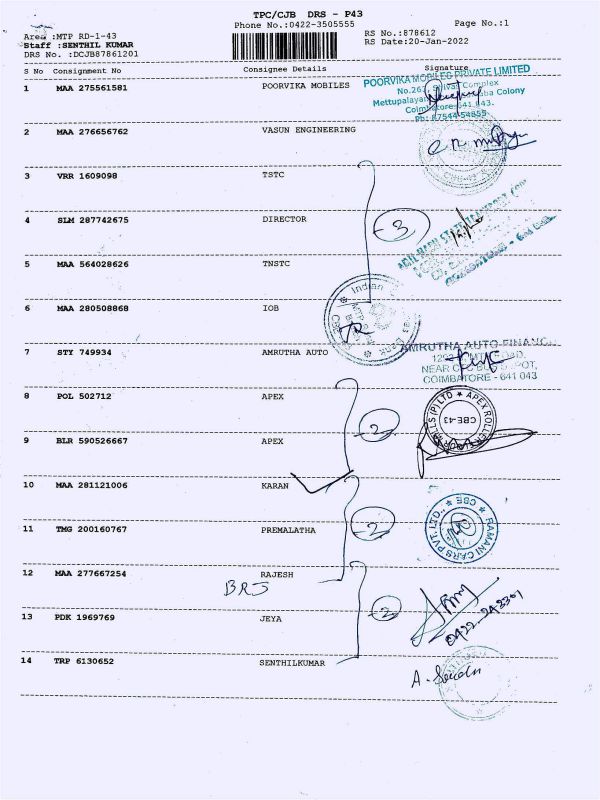 TPC/CJB DRS - P43
Phone No.:0422-3505555
Page No.:1
Area :MTP RD-1-43
RS No.:878612
Staff :SENTHIL KUMAR
RS Date:20-Jan-2022
DRS No. :DCJB87861201
S No Consignment No Consignee Details Signature
1 MAA 275561581 POORVIKA MOBILES
POORVIKA MOBILES PRIVATE LIMITED
Complex
Mettupalayam Colony
Coimbatore-641 043.
Ph: 87544 54855
2 MAA 276656762 VASUN ENGINEERING
3 VRR 1609098 TSTC
3
4 SLM 287742675 DIRECTOR
5 MAA 564028626 TNSTC
6 MAA 280508868 IOB
Indian Bank
7 STY 749934 AMRUTHA AUTO
AMRUTHA AUTO FINANC
NEAR
COIMBATORE - 641 043
8 POL 502712 APEX
2
APEX ROLLER MILLS (P) LTD
CBE-43
9 BLR 590526667 APEX
10 MAA 281121006 KARAN
11 TMG 200160767 PREMALATHA
2
RAMANI CARS PVT. LTD., CBE
12 MAA 277667254 RAJESH
BRJ
13 PDK 1969769 JEYA
2
14 TRP 6130652 SENTHILKUMAR